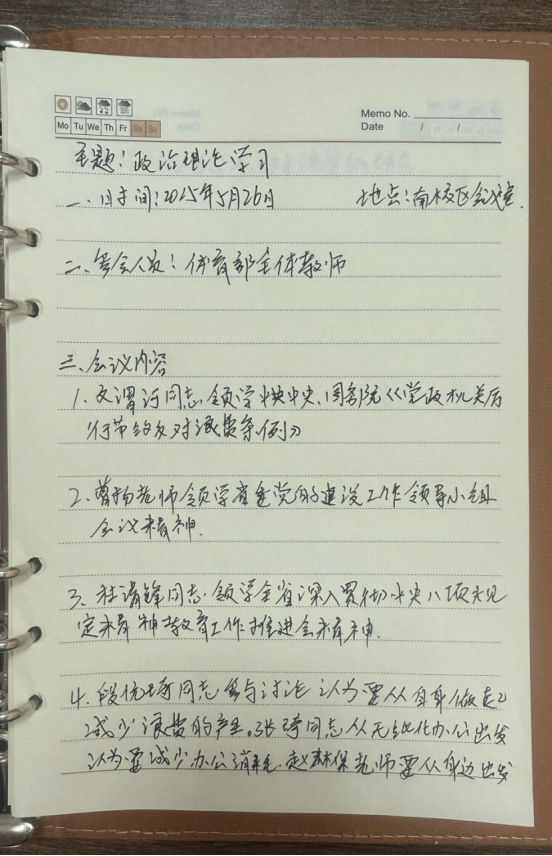 Memo No.
Mo Tu We Th Fr Sa Su
Date / /
主题：政治理论学习
一、时间：2025年5月26日 地点：南校区会议室.
二、参会人员：体育部全体教师
三、会议内容
1、文渭河同志领学中央、国务院《党政机关厉
行节约反对浪费条例》
2、曹扬老师领学省委党的建设工作领导小组
会议精神.
3、杜清锋同志领学全省深入贯彻中央八项规
定精神教育工作推进会精神.
4、段优 同志参与讨论 认为要从自身做起
减少浪费的产生。张琦同志从无纸化办公出发
认为要减少办公消耗. 赵 保老师要从身边出发